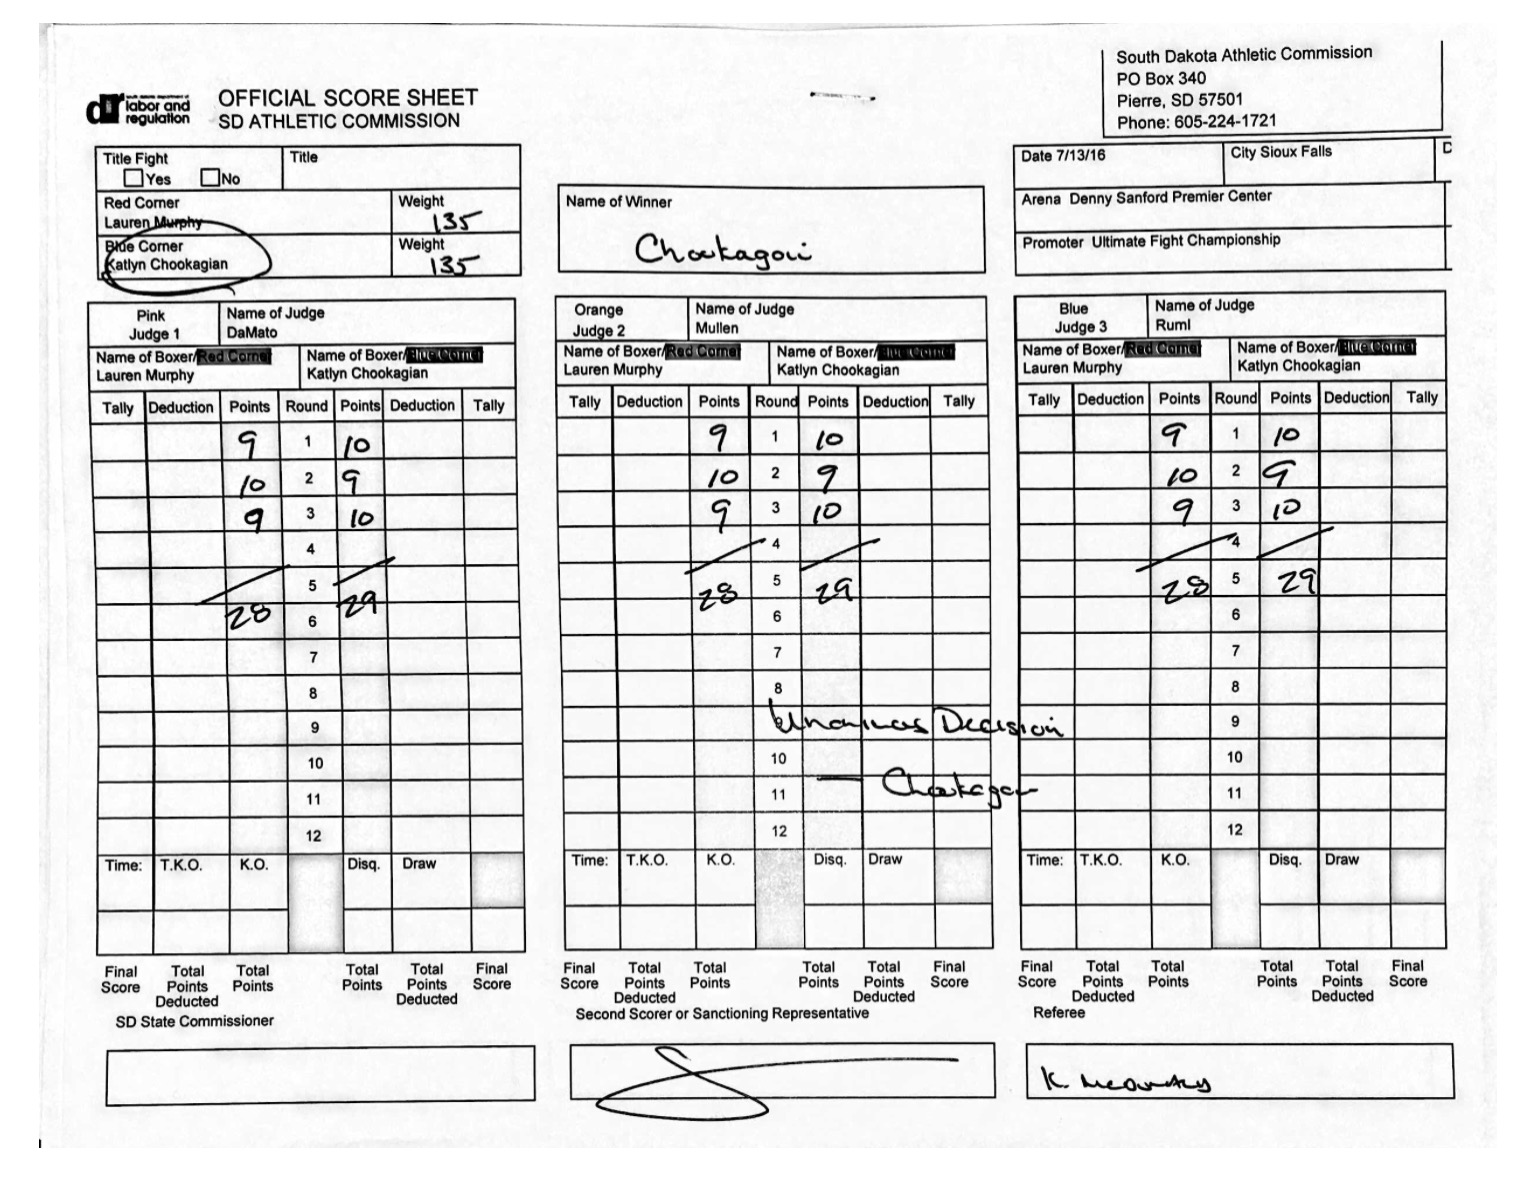 South Dakota Athletic Commission
PO Box 340
Pierre, SD 57501
Phone: 605-224-1721
labor and
regulation
OFFICIAL SCORE SHEET
SD ATHLETIC COMMISSION
Title Fight
Yes No
Title
Red Corner
Lauren Murphy
Weight
135
Blue Corner
Katlyn Chookagian
Weight
135
Name of Winner
Chookagan
Date 7/13/16
City Sioux Falls
Arena Denny Sanford Premier Center
Promoter Ultimate Fight Championship
Pink
Judge 1
Name of Judge
DaMato
Name of Boxer/Red Corner
Lauren Murphy
Name of Boxer/Blue Corner
Katlyn Chookagian
Tally Deduction Points Round Points Deduction Tally
9 1 10
10 2 9
9 3 10
4
5
28 6 29
7
8
9
10
11
12
Time: T.K.O. K.O. Disq. Draw
Final Score Total Points Deducted Total Points Total Points Total Points Deducted Final Score
SD State Commissioner
Orange
Judge 2
Name of Judge
Mullen
Name of Boxer/Red Corner
Lauren Murphy
Name of Boxer/Blue Corner
Katlyn Chookagian
Tally Deduction Points Round Points Deduction Tally
9 1 10
10 2 9
9 3 10
4
28 5 29
6
7
8
Unanimous Decision
10
11 — Chookagan
12
Time: T.K.O. K.O. Disq. Draw
Final Score Total Points Deducted Total Points Total Points Total Points Deducted Final Score
Second Scorer or Sanctioning Representative
Blue
Judge 3
Name of Judge
Ruml
Name of Boxer/Red Corner
Lauren Murphy
Name of Boxer/Blue Corner
Katlyn Chookagian
Tally Deduction Points Round Points Deduction Tally
9 1 10
10 2 9
9 3 10
4
28 5 29
6
7
8
9
10
11
12
Time: T.K.O. K.O. Disq. Draw
Final Score Total Points Deducted Total Points Total Points Total Points Deducted Final Score
Referee
K.